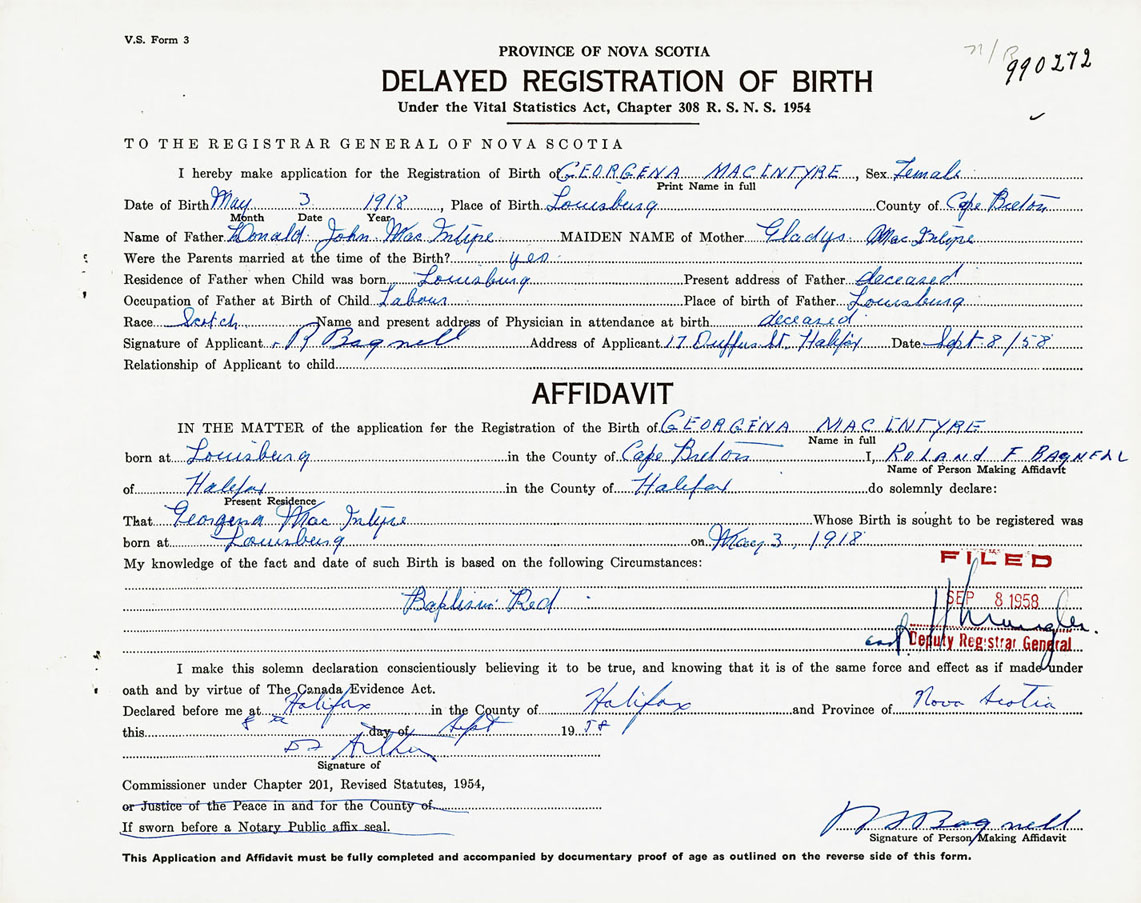 V.S. Form 3
990272
PROVINCE OF NOVA SCOTIA
DELAYED REGISTRATION OF BIRTH
Under the Vital Statistics Act, Chapter 308 R. S. N. S. 1954
TO THE REGISTRAR GENERAL OF NOVA SCOTIA
I hereby make application for the Registration of Birth of GEORGENA MACINTYRE, Sex Female
Print Name in full
Date of Birth May 3 1918, Place of Birth Louisburg County of Cape Breton
Month Date Year
Name of Father Donald John MacIntyre MAIDEN NAME of Mother Gladys MacIntyre
Were the Parents married at the time of the Birth? yes
Residence of Father when Child was born Louisburg Present address of Father deceased
Occupation of Father at Birth of Child Labour Place of birth of Father Louisburg
Race Scotch Name and present address of Physician in attendance at birth deceased
Signature of Applicant R Bagnell Address of Applicant 17 Duffus St. Halifax Date Sept 8/58
Relationship of Applicant to child
AFFIDAVIT
IN THE MATTER of the application for the Registration of the Birth of GEORGENA MACINTYRE
Name in full
born at Louisburg in the County of Cape Breton I, ROLAND F BAGNELL
Name of Person Making Affidavit
of Halifax in the County of Halifax do solemnly declare:
Present Residence
That Georgena MacIntyre Whose Birth is sought to be registered was
born at Louisburg on May 3, 1918
My knowledge of the fact and date of such Birth is based on the following Circumstances:
FILED
Baptism Red
SEP 8 1958
Deputy Registrar General
I make this solemn declaration conscientiously believing it to be true, and knowing that it is of the same force and effect as if made under
oath and by virtue of The Canada Evidence Act.
Declared before me at Halifax in the County of Halifax and Province of Nova Scotia
this 8 day of Sept 1958
Signature of
Commissioner under Chapter 201, Revised Statutes, 1954,
or Justice of the Peace in and for the County of
If sworn before a Notary Public affix seal.
Bagnell
Signature of Person Making Affidavit
This Application and Affidavit must be fully completed and accompanied by documentary proof of age as outlined on the reverse side of this form.